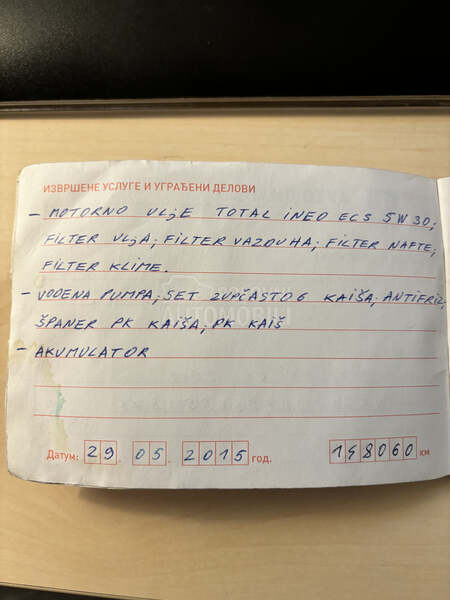 ИЗВРШЕНЕ УСЛУГЕ И УГРАЂЕНИ ДЕЛОВИ
- MOTORNO ULjE TOTAL iNEO ECS 5W30;
FiLTER ULjA; FiLTER VAZDUHA; FiLTER NAFTE;
FiLTER KLIME.
- VODENA PUMPA; SET ZUPČASTOG KAIŠA; ANTIFRIZ,
ŠPANER PK KAIŠA; PK KAIŠ
- AKUMULATOR
Датум: 29. 05. 2015 год. км